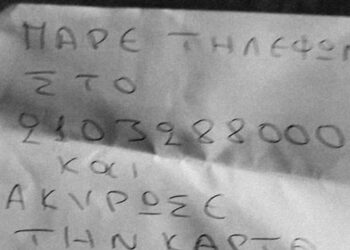 ΠΑΡΕ ΤΗΛΕΦΩΝ
ΣΤΟ
2103288000
και
ΑΚΥΡΩΣΕ
ΤΗΝ ΚΑΡΤΑ